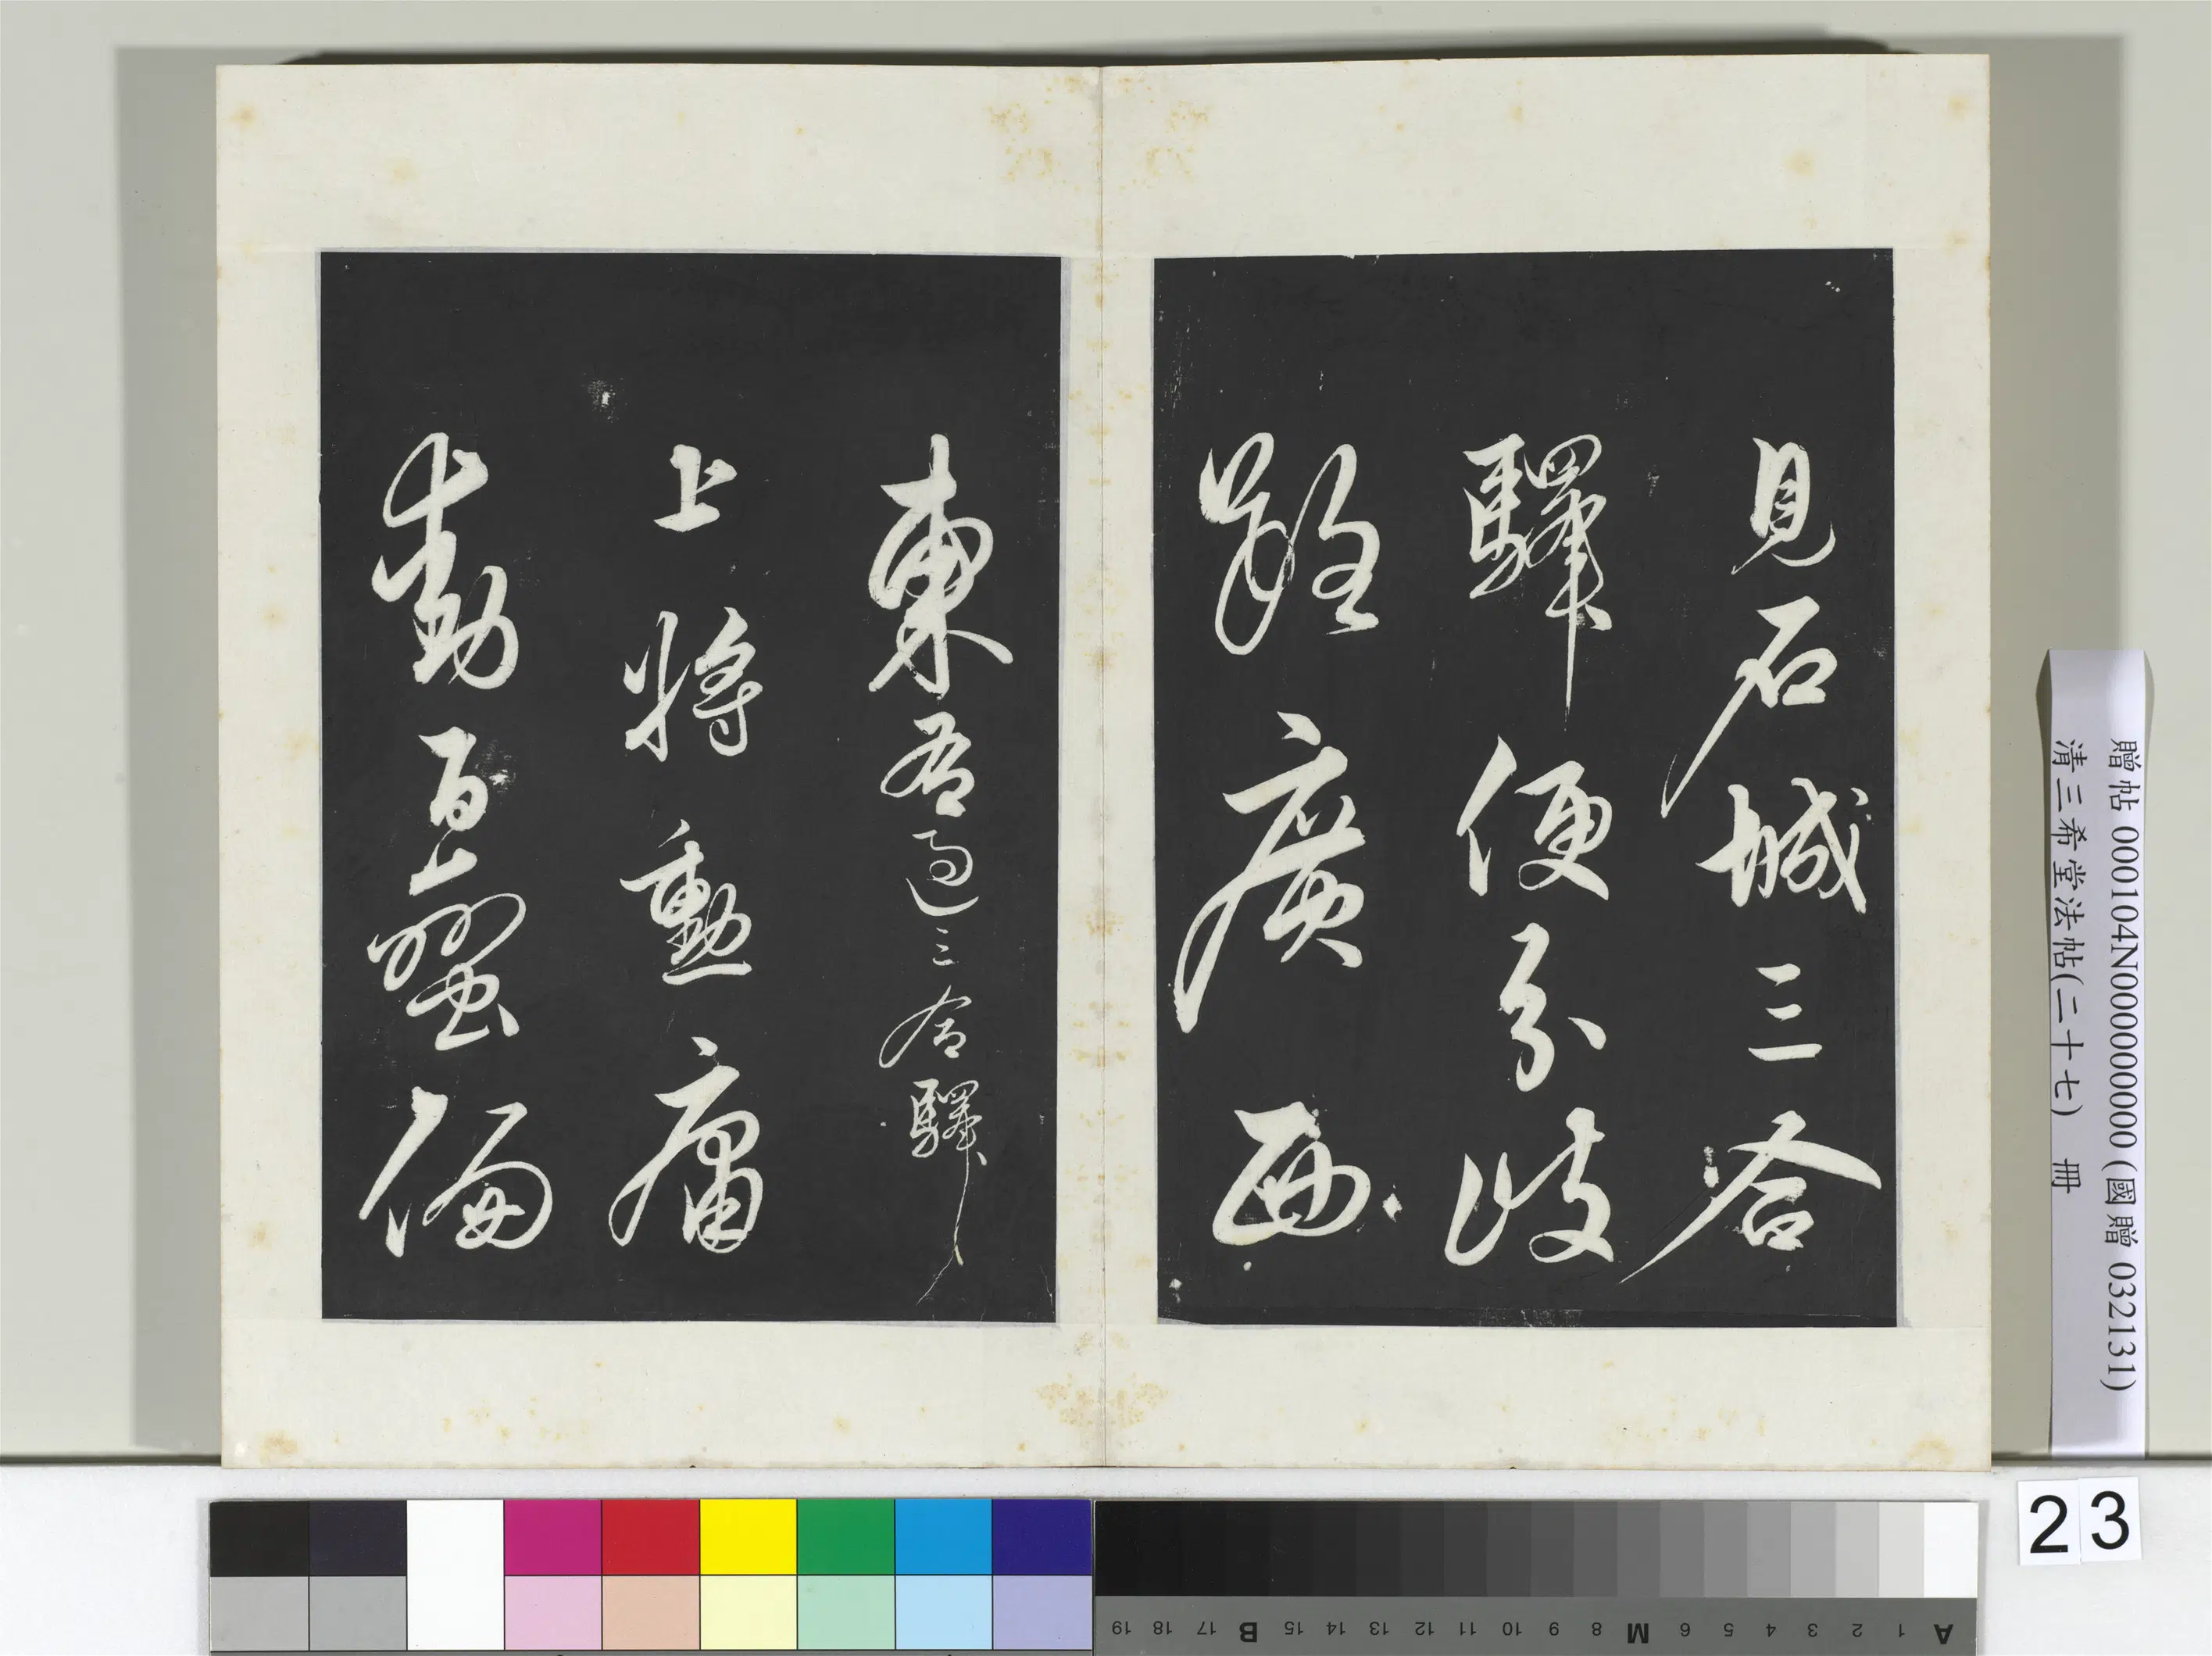 見石城三合
驛便分岐
路廣西
東右過三合驛
上將勳庸
動百蠻偏
贈帖 000104N000000000 (國贈 032131)
清三希堂法帖(二十七) 冊
23
A 1 2 3 4 5 6 M 8 9 10 11 12 13 14 15 B 17 18 19